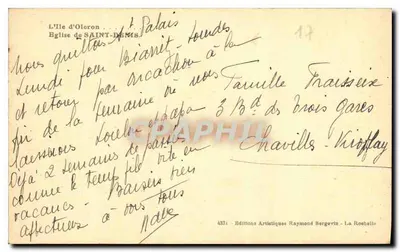 L'Ile d'Oléron
Eglise de SAINT-DENIS
17
Nous quittons St Palais
Lundi pour Biarritz - Lourdes
et retour par Arcachon à la
fin de la semaine. Nous
laisserons Loulou papa
Déjà 2 semaines de passées
comme le temps file vite en
vacances. Baisers très
affectueux à vous tous
Famille Fraisseix
3 Bd des trois gares
Chaville-Viroflay
Editions Artistiques Raymond Bergevin - La Rochelle